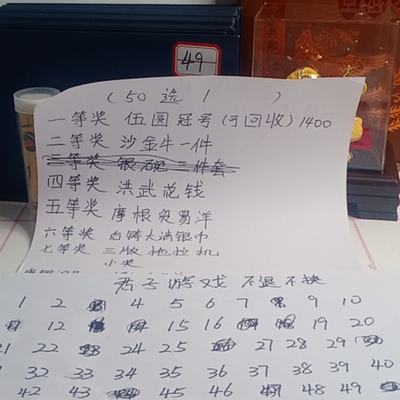 49
(50 选 1 )
一等奖 伍圆冠号(可回收)1400
二等奖 沙金牛一件
三等奖 银碗 三件套
四等奖 洪武花钱
五等奖 摩根贸易洋
六等奖 白铸大满银币
七等奖 三版拖拉机
小奖
君子游戏 不退不换
1 2 4 5 6 7 9 10
12 15 16 19 20
21 22 24 25 27 28 29
32 33 34 35 36 37 38 39 40
42 43 45 46 48 49